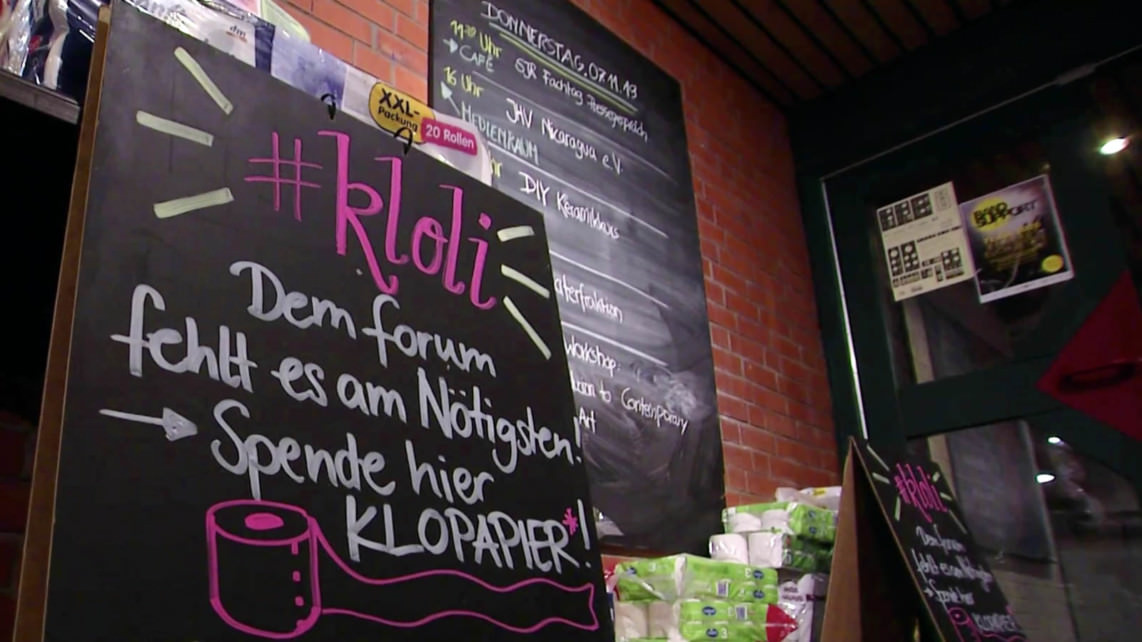 #kloli
Dem forum
fehlt es am Nötigsten!
→ Spende hier
KLOPAPIER*!
XXL-
Packung
20 Rollen
dm
DONNERSTAG, 07.11.19
14:30 Uhr
→ CAFÉ
SJR Fachtag Pressegespräch
16 Uhr
JHV Nicaragua e.V.
MEDIENRAUM
DIY Keramikkurs
aterfraktion
Workshop:
to Contemporary
Art
#kloli
Dem forum
fehlt es am Nötigsten
→ Spende hier
KLOPAPIER